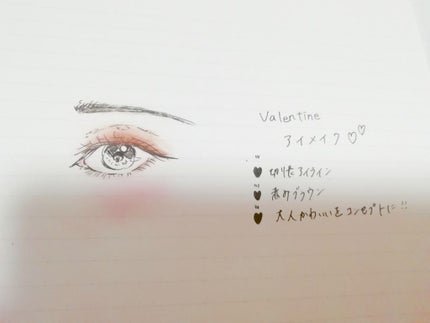 Valentine
アイメイク♡♡
♥ 切れたアイライン
♥ 赤みブラウン
♥ 大人かわいいをコンセプトに!!